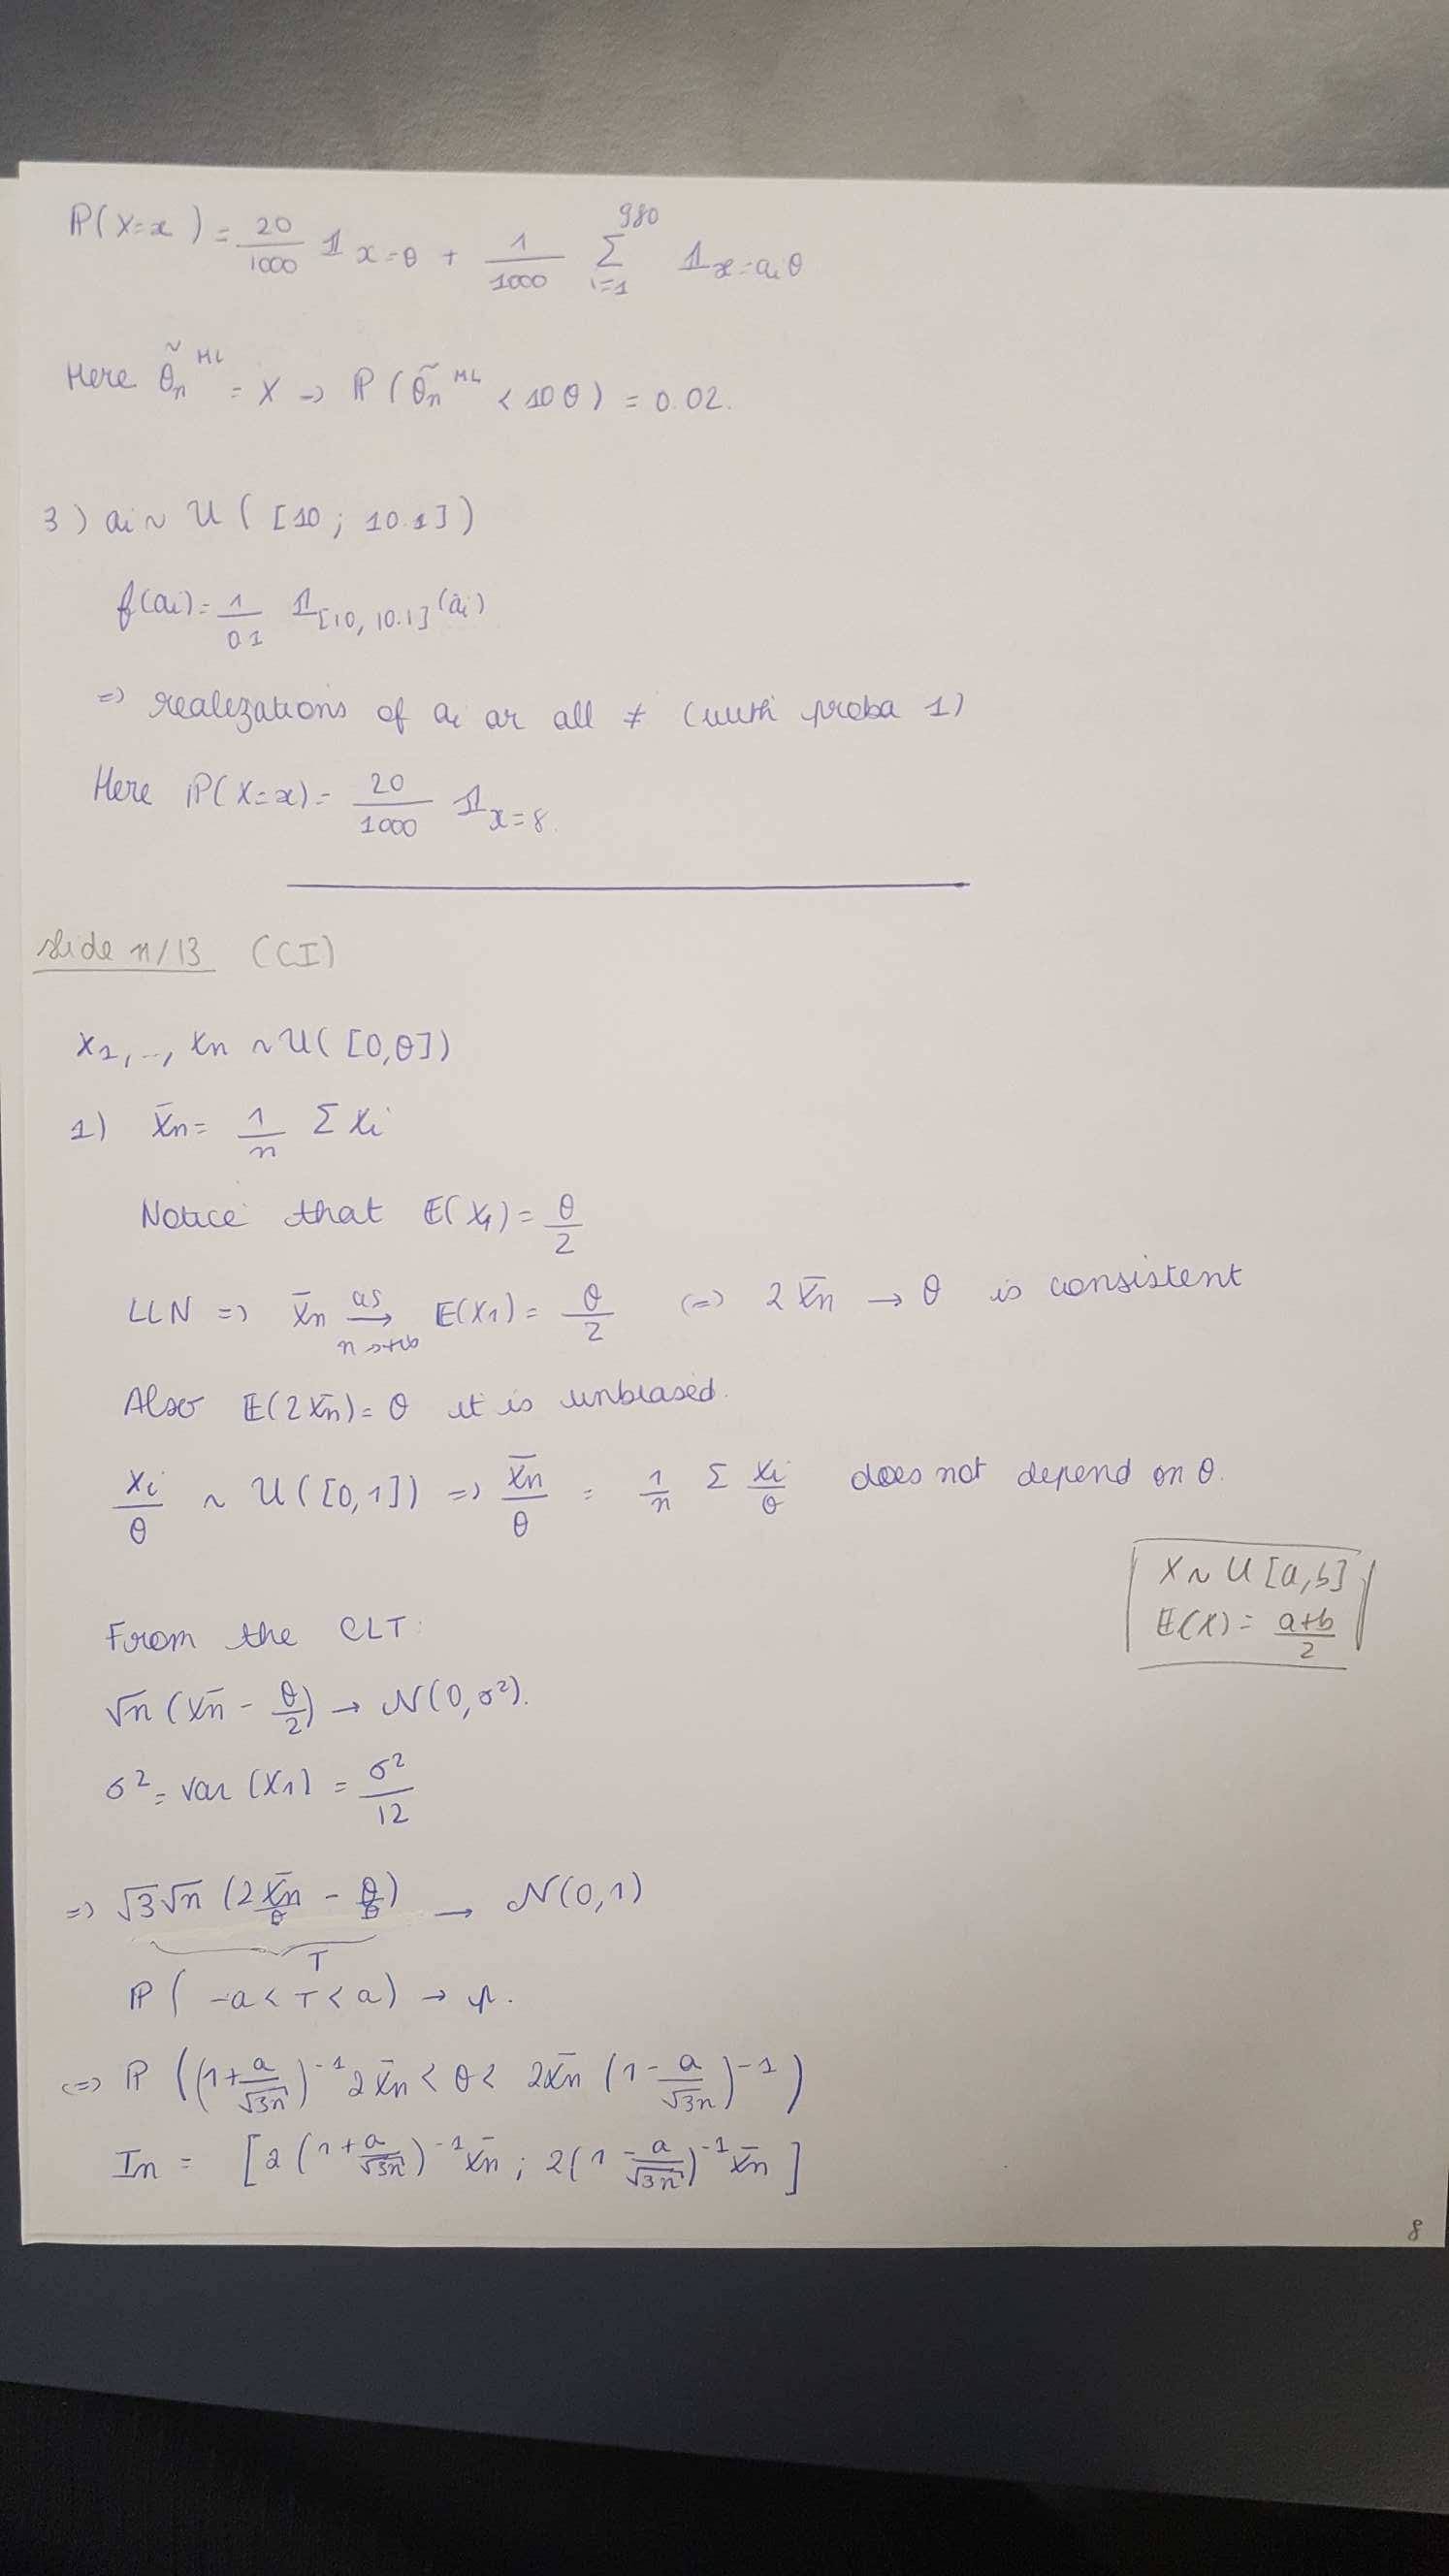 P(X=x) = 20/1000 𝟙 x=θ + 1/1000 Σ_{i=1}^{980} 𝟙 x=aiθ
Here θ̃n^ML = X → P(θ̃n^ML < 10θ) = 0.02.
3) ai ~ U([10; 10.1])
f(ai) = 1/0.1 𝟙[10, 10.1](ai)
=> realizations of ai ar all ≠ (with proba 1)
Here P(X=x) = 20/1000 𝟙 x=8.
slide 11/13 (CI)
X1, .., Xn ~ U([0,θ])
1) X̄n = 1/n Σ Xi
Notice that E(X1) = θ/2
LLN => X̄n →as n→+∞ E(X1) = θ/2 (=) 2X̄n → θ is consistent
Also E(2X̄n) = θ it is unbiased.
Xi/θ ~ U([0,1]) => X̄n/θ = 1/n Σ Xi/θ does not depend on θ.
X ~ U[a,b]
E(X) = a+b/2
From the CLT:
√n (X̄n - θ/2) → N(0,σ²).
σ² = var(X1) = σ²/12
=> √3√n (2X̄n/θ - θ/θ) → N(0,1)
T
P(-a < T < a) → p.
<=> P((1+a/√3n)^-1 2X̄n < θ < 2X̄n (1-a/√3n)^-1)
In = [2(1+a/√3n)^-1 X̄n ; 2(1-a/√3n)^-1 X̄n]
8